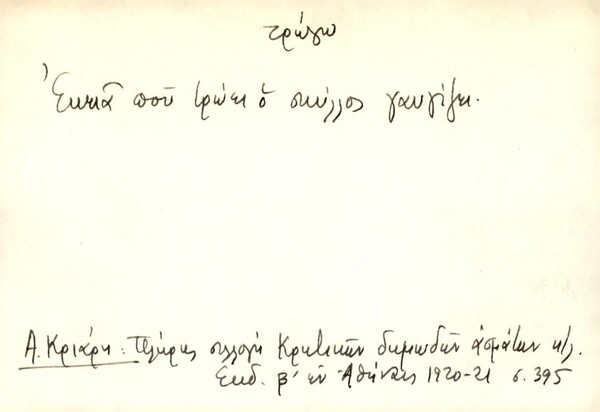 τρώγω
Ἐκειᾶ ποῦ τρώει ὁ σκύλλος γαυγίζει.
Α. Κριάρη: Πλήρης συλλογή Κρητικῶν δημωδῶν ἀσμάτων κ/λ.
Εκδ. β' εν Ἀθήναις 1920-21 σ. 395